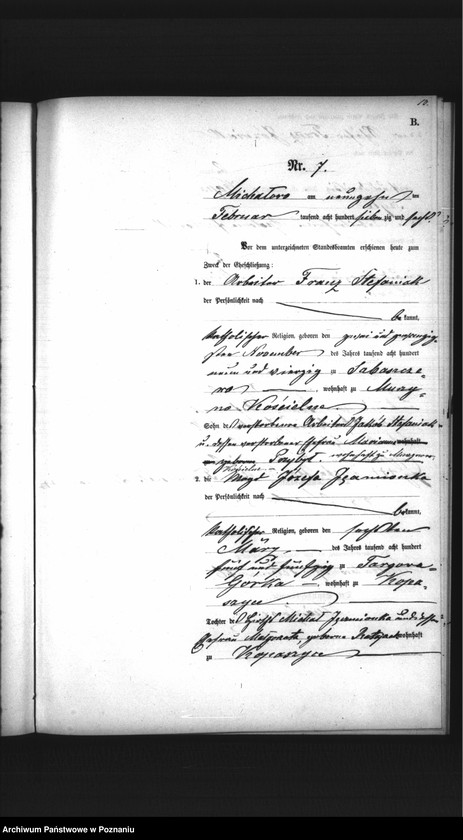 B.
Nr. 7.
Michałowo am neunzehnten
Februar tausend acht hundert siebenzig und sechs
Vor dem unterzeichneten Standesbeamten erschienen heute zum
Zweck der Eheschließung:
1. der Arbeiter Franz Stefaniak
der Persönlichkeit nach
be kannt,
katholischer Religion, geboren den zwei und zwanzig-
sten November des Jahres tausend acht hundert
neun und vierzig zu
wohnhaft zu Murzy-
no Kościelne
Sohn des verstorbenen Arbeiters Jakób Stefaniak
u. dessen verstorbener Ehefrau Marianna wohnhaft
geborene wohnhaft zu
2. die Magd Józefa Izamionka
der Persönlichkeit nach
be kannt,
katholischer Religion, geboren den sechsten
März des Jahres tausend acht hundert
fünf und fünfzig zu Targowa-
Górka, wohnhaft zu Kopa-
szyce
Tochter des Michał Izamionka und dessen
Ehefrau geborene wohnhaft
zu Kopaszyce
Archiwum Państwowe w Poznaniu